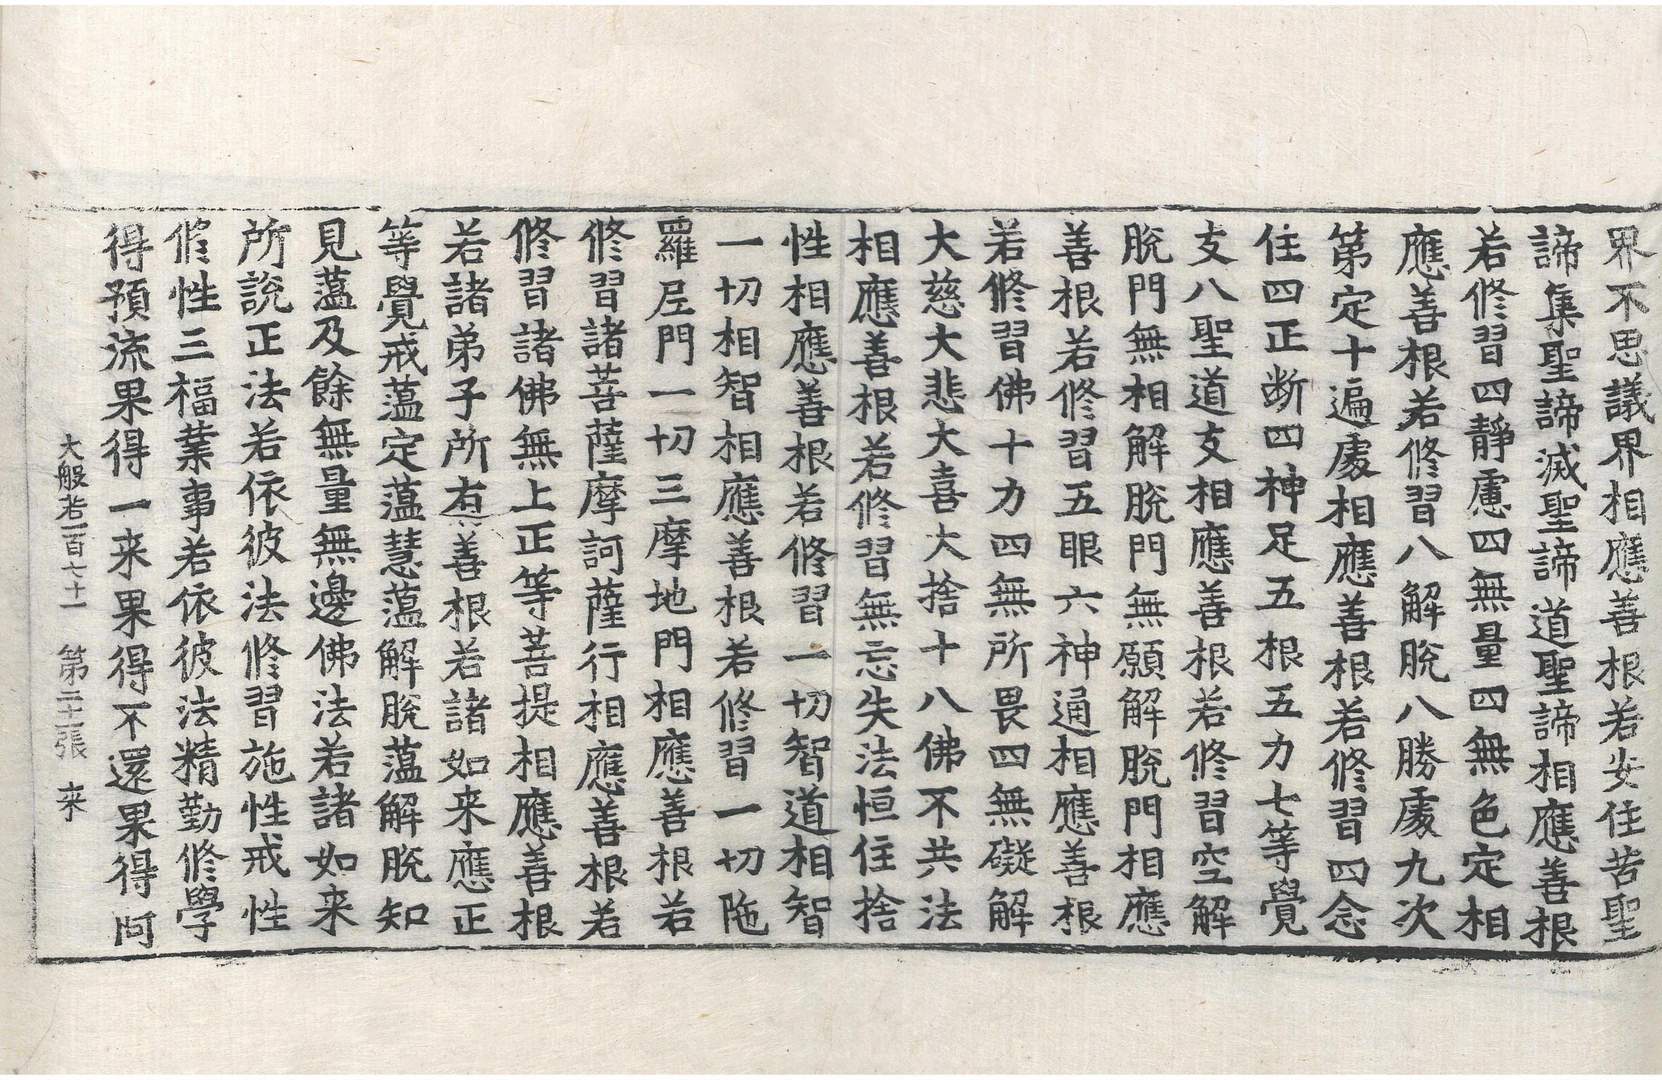 界不思議界相應善根若安住苦聖
諦集聖諦滅聖諦道聖諦相應善根
若修習四靜慮四無量四無色定相
應善根若修習八解脫八勝處九次
第定十遍處相應善根若修習四念
住四正断四神足五根五力七等覺
支八聖道支相應善根若修習空解
脫門無相解脫門無願解脫門相應
善根若修習五眼六神通相應善根
若修習佛十力四無所畏四無礙解
大慈大悲大喜大捨十八佛不共法
相應善根若修習無忘失法恒住捨
性相應善根若修習一切智道相智
一切相智相應善根若修習一切陁
羅尼門一切三摩地門相應善根若
修習諸菩薩摩訶薩行相應善根若
修習諸佛無上正等菩提相應善根
若諸弟子所有善根若諸如来應正
等覺戒蘊定蘊慧蘊解脫蘊解脫知
見蘊及餘無量無邊佛法若諸如来
所說正法若依彼法修習施性戒性
修性三福業事若依彼法精勤修學
得預流果得一来果得不還果得阿
大般若一百七十一 第二十一張 來